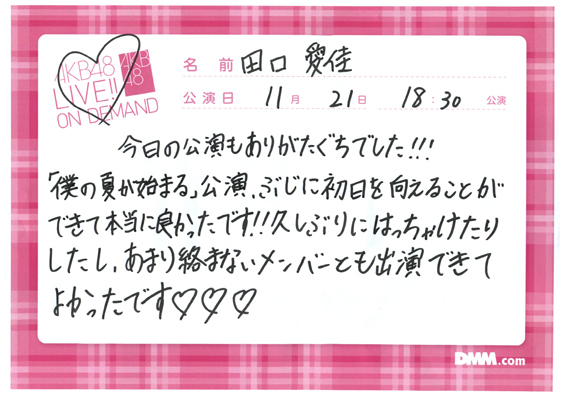 AKB48
LIVE!!
ON DEMAND
AKB
48
名前 田口 愛佳
公演日 11月 21日 18:30 公演
今日の公演もありがたぐちでした!!!
「僕の夏が始まる」公演、ぶじに初日を向えることが
できて本当に良かったです!!久しぶりにはっちゃけたり
したし、あまり絡まないメンバーとも出演できて
よかったです♡♡♡
DMM.com